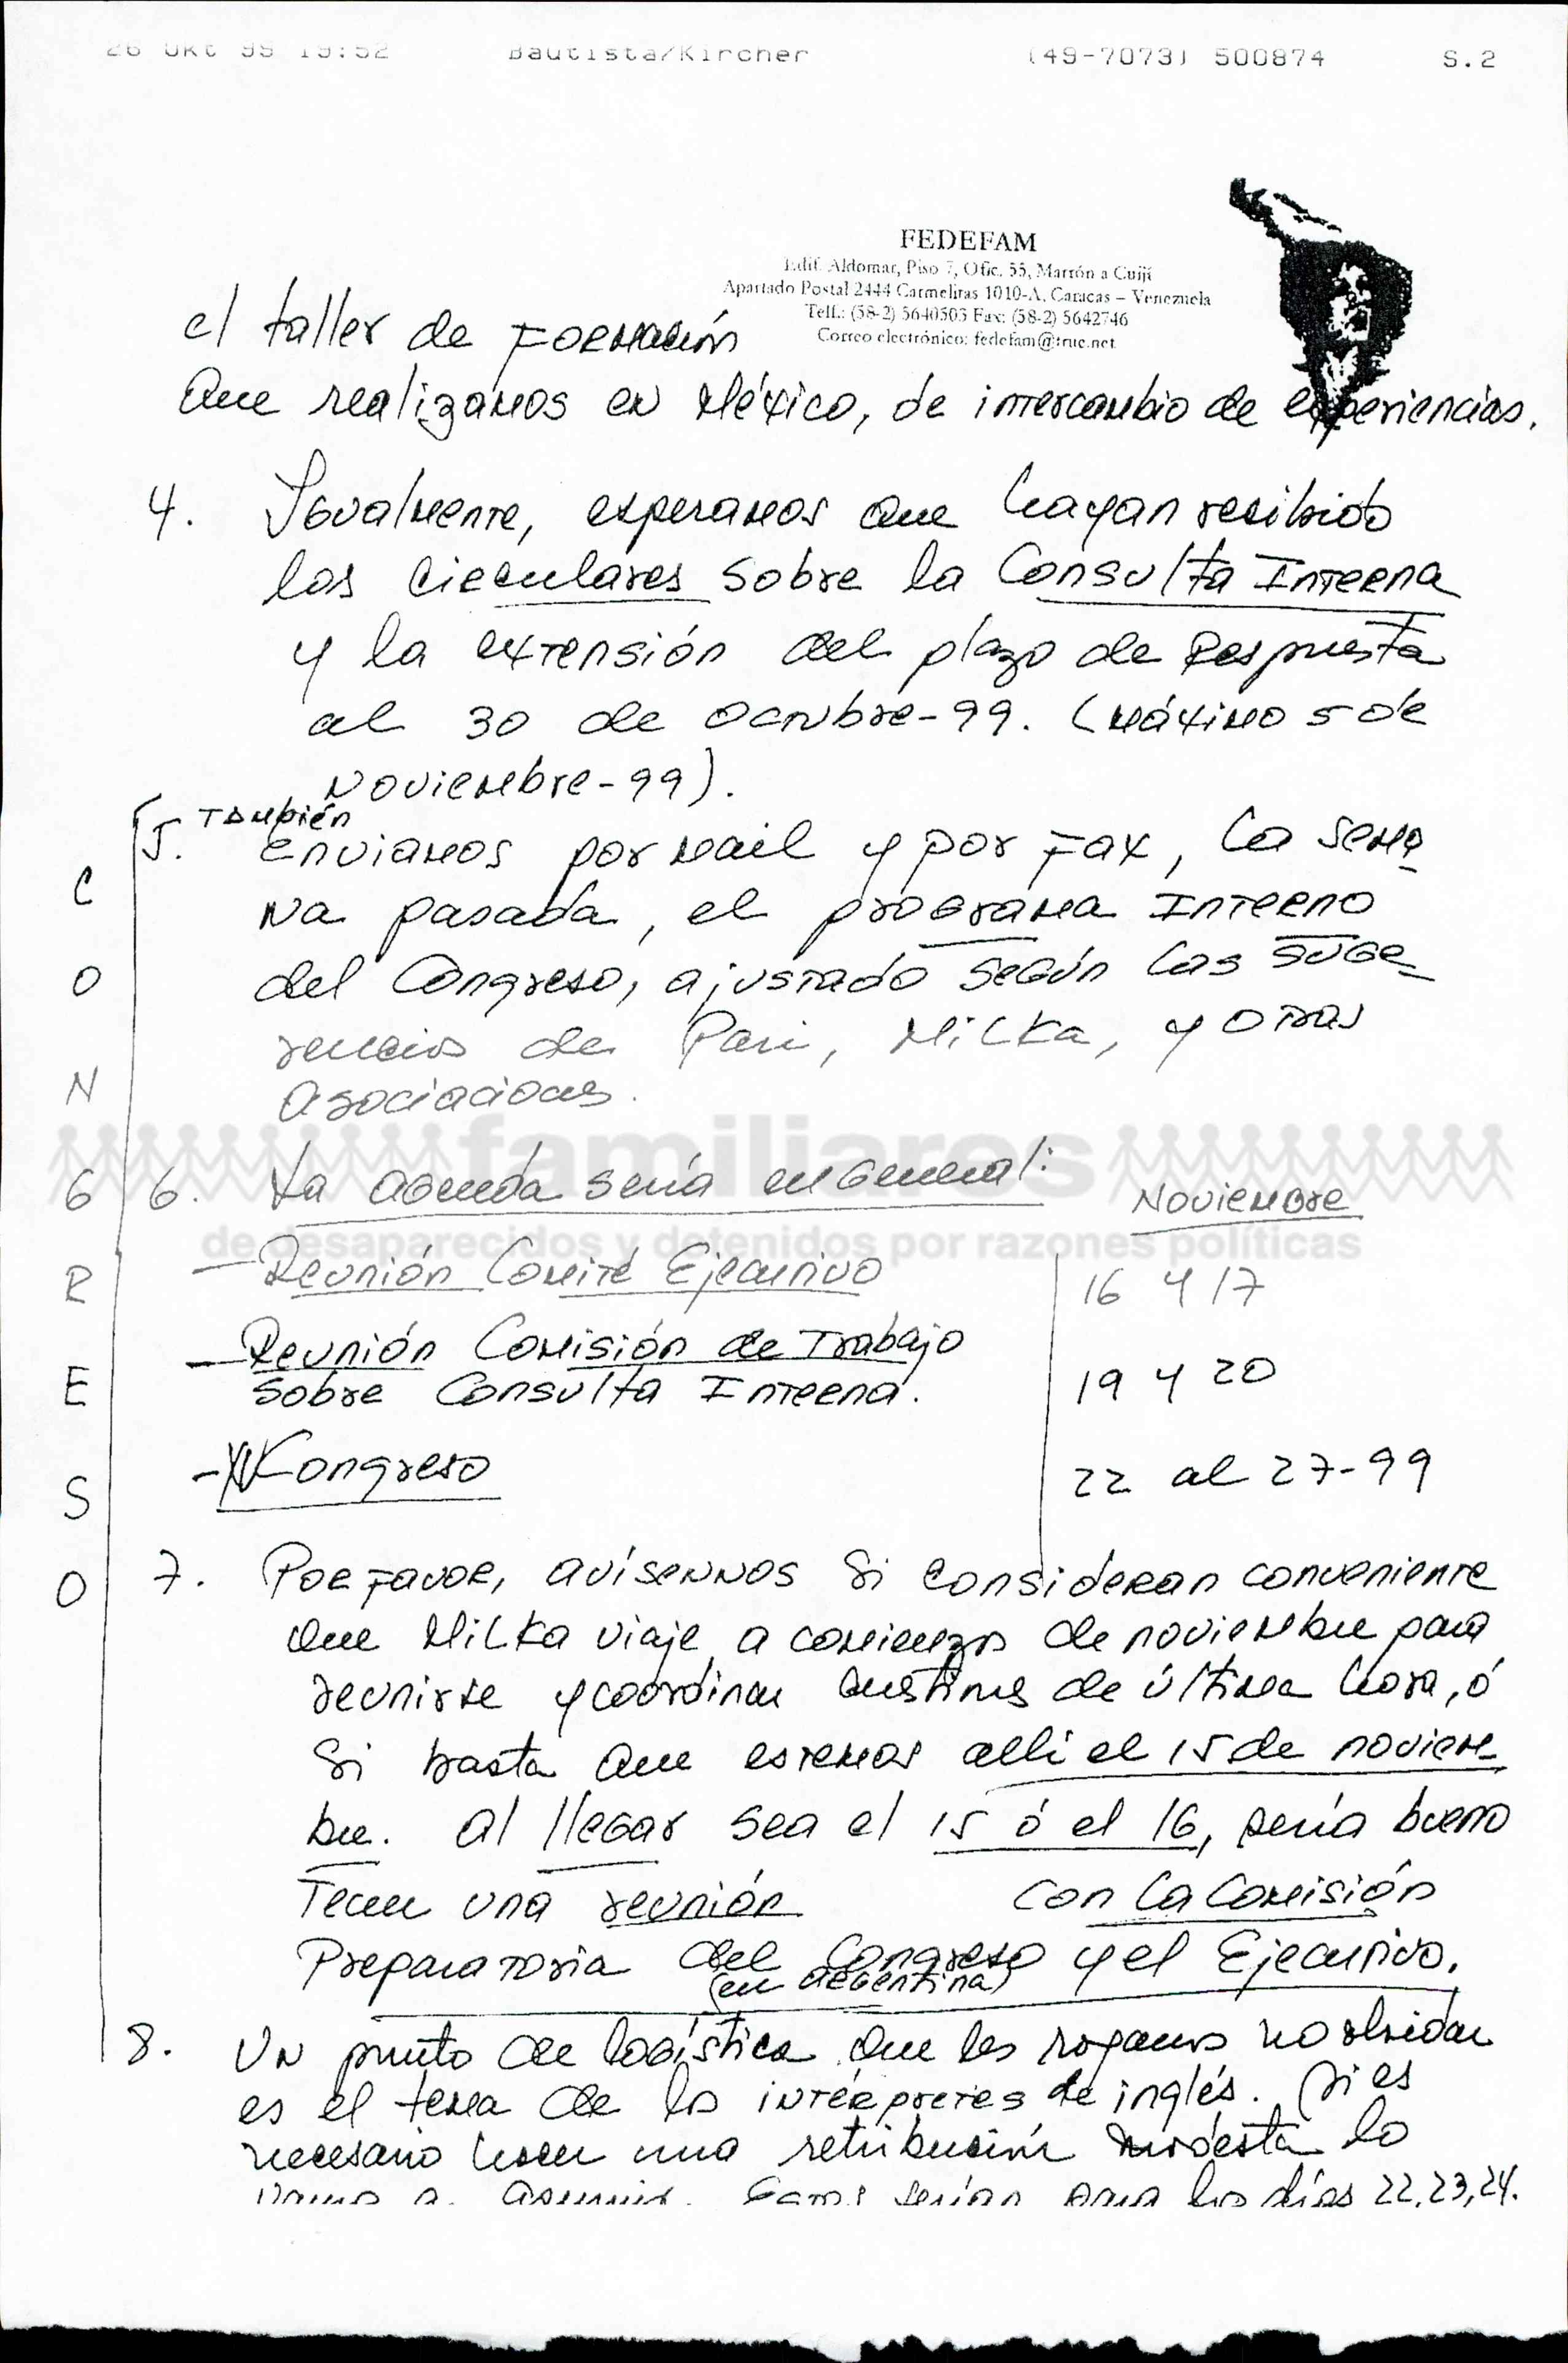 26 Okt 99 19:52 Bautista/Kircher (49-7073) 500874 S.2
FEDEFAM
Edif. Aldomar, Piso 7, Ofic. 55, Marrón a Cují
Apartado Postal 2444 Carmelitas 1010-A, Caracas – Venezuela
Telf.: (58-2) 5640503 Fax: (58-2) 5642746
Correo electrónico: fedefam@true.net
el taller de Formación
que realizamos en México, de intercambio de experiencias.
4. Igualmente, esperamos que hayan recibido
las circulares sobre la Consulta Interna
y la extensión del plazo de Respuesta
al 30 de octubre-99. (máximo 5 de
Noviembre-99).
5. También
enviamos por mail y por Fax, la sema
na pasada, el programa Interno
del Congreso, ajustado según las suge
rencias de Pari, Milka, y otras
asociaciones.
CONGRESO
familiares
de desaparecidos y detenidos por razones políticas
6. La agenda sería en general: Noviembre
- Reunión Comité Ejecutivo 16 y 17
- Reunión Comisión de Trabajo
sobre Consulta Interna. 19 y 20
- XV Congreso 22 al 27-99
7. Por favor, avísennos si consideran conveniente
que Milka viaje a comienzos de noviembre para
reunirse y coordinar cuestiones de última hora, ó
si basta que estemos allí el 15 de noviem
bre. Al llegar sea el 15 ó el 16, sería bueno
tener una reunión con la Comisión
Preparatoria del Congreso y el Ejecutivo.
(en Argentina)
8. Un punto de logística que les rogamos no olvidar
es el tema de los intérpretes de inglés. Si es
necesario hacer una retribución modesta lo
vamos a asumir. serían para los días 22, 23, 24.